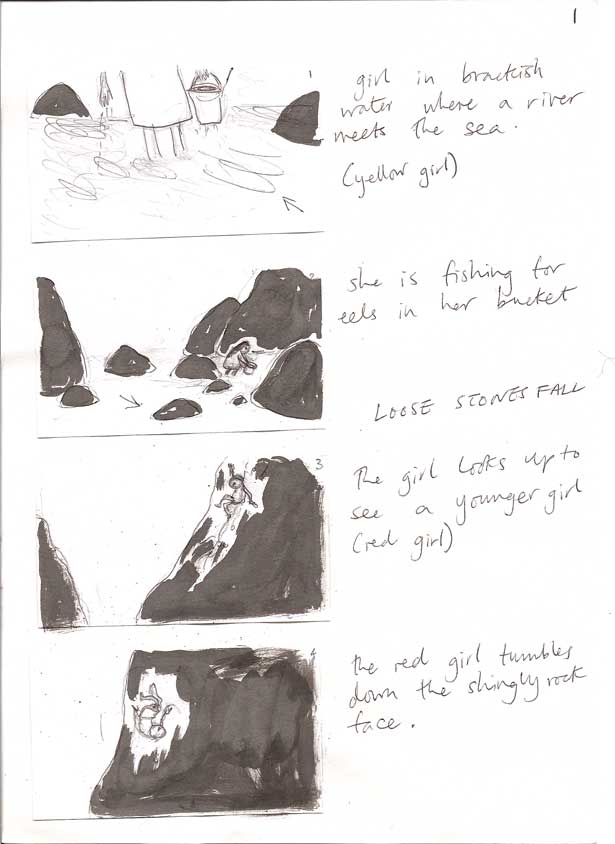 1
1
girl in brackish
water where a river
meets the sea.
(yellow girl)
2
she is fishing for
eels in her bucket
LOOSE STONES FALL
3
The girl looks up to
see a younger girl
(red girl)
4
the red girl tumbles
down the shingly rock
face.